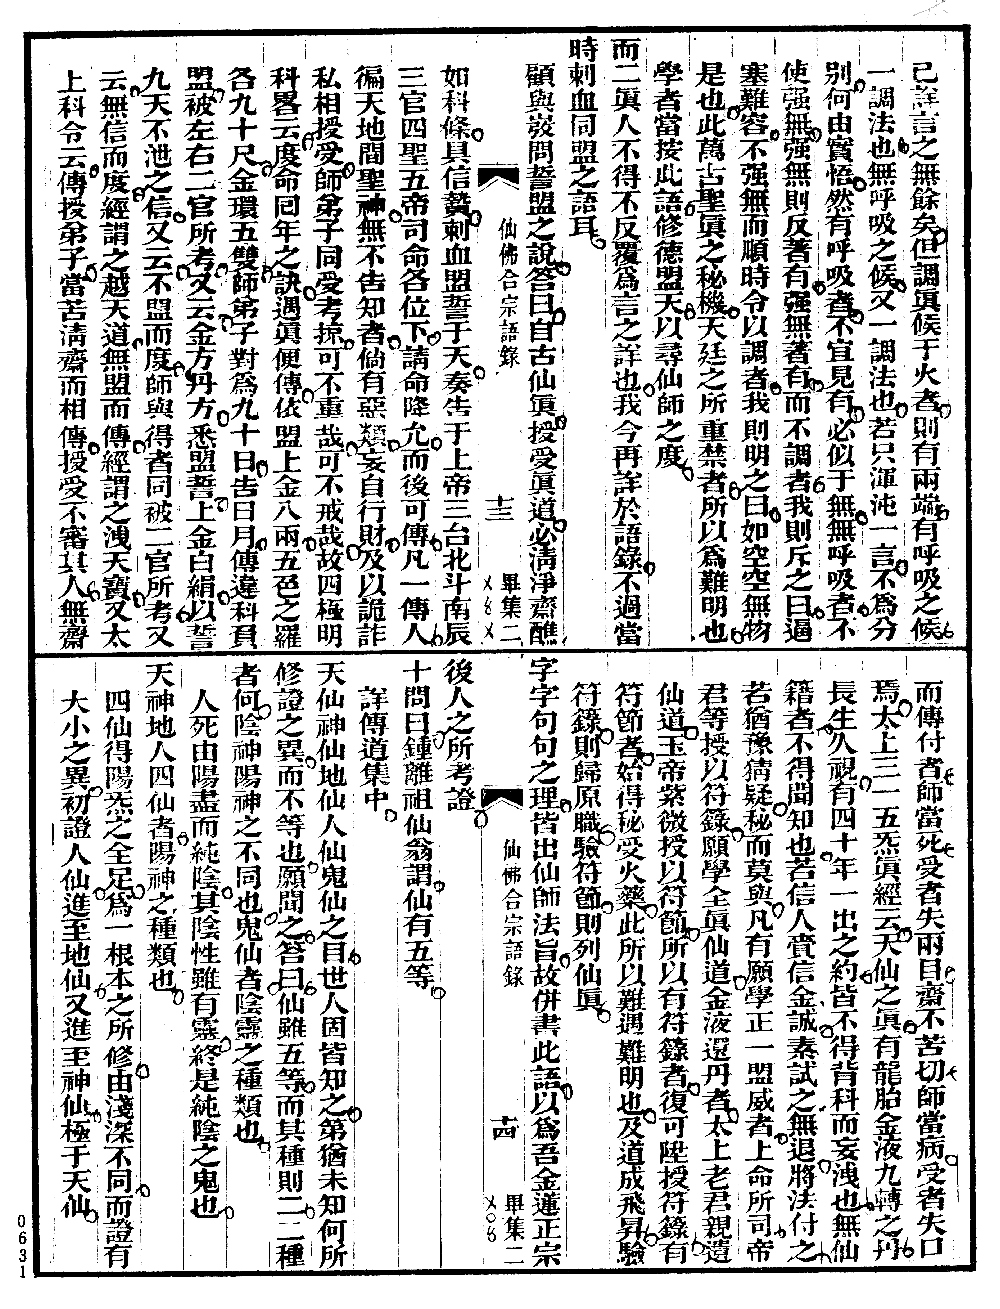 已詳言之無餘矣但調眞候于火者則有兩端有呼吸之候
一調法也無呼吸之候又一調法也若只渾沌一言不爲分
別何由實悟然有呼吸者不宜見有必似于無無呼吸者不
使强無强無則反著有强無著有而不調者我則斥之曰逼
塞難容不强無而順時令以調者我則明之曰如空空無物
是也此萬古聖眞之秘機天廷之所重禁者所以爲難明也
學者當按此語修德盟天以尋仙師之度
而二眞人不得不反覆爲言之詳也我今再詳於語錄不過當
時刺血同盟之語耳
顧與嶷問誓盟之說答曰自古仙眞授受眞道必淸淨齋醮
仙佛合宗語錄
十三
畢集二
如科條具信贄刺血盟誓于天奏告于上帝三台北斗南辰
三官四聖五帝司命各位下請命降允而後可傳凡一傳人
徧天地間聖神無不告知者倘有惡類妄自行財及以詭詐
私相授受師弟子同受考掠可不重哉可不戒哉故四極明
科畧云度命回年之訣遇眞便傳依盟上金八兩五色之羅
各九十尺金環五雙師弟子對爲九十日告日月傳違科負
盟被左右二官所考又云金方丹方悉盟誓上金白絹以誓
九天不泄之信又云不盟而度師與得者同被二官所考又
云無信而度經謂之越天道無盟而傳經謂之洩天寶又太
上科令云傳授弟子當苦淸齋而相傳授受不審其人無齋
而傳付者師當死受者失兩目齋不苦切師當病受者失口
焉太上三一五炁眞經云天仙之眞有龍胎金液九轉之丹
長生久視有四十年一出之約皆不得背科而妄洩也無仙
籍者不得聞知也若信人賫信金誠素試之無退將法付之
若猶豫猜疑秘而莫與凡有願學正一盟威者上命所司帝
君等授以符籙願學全眞仙道金液還丹者太上老君親遣
仙道玉帝紫微授以符節所以有符籙者復可陞授符籙有
符節者始得秘受火藥此所以難遇難明也及道成飛昇驗
符籙則歸原職驗符節則列仙眞
字字句句之理皆出仙師法旨故併書此語以爲吾金蓮正宗
仙佛合宗語錄
十四
畢集二
後人之所考證
十問曰鍾離祖仙翁謂仙有五等
詳傳道集中
天仙神仙地仙人仙鬼仙之目世人固皆知之第猶未知何所
修證之異而不等也願聞之答曰仙雖五等而其種則二二種
者何陰神陽神之不同也鬼仙者陰靈之種類也
人死由陽盡而純陰其陰性雖有靈終是純陰之鬼也
天神地人四仙者陽神之種類也
四仙得陽炁之全足爲一根本之所修由淺深不同而證有
大小之異初證人仙進至地仙又進至神仙極于天仙
0631